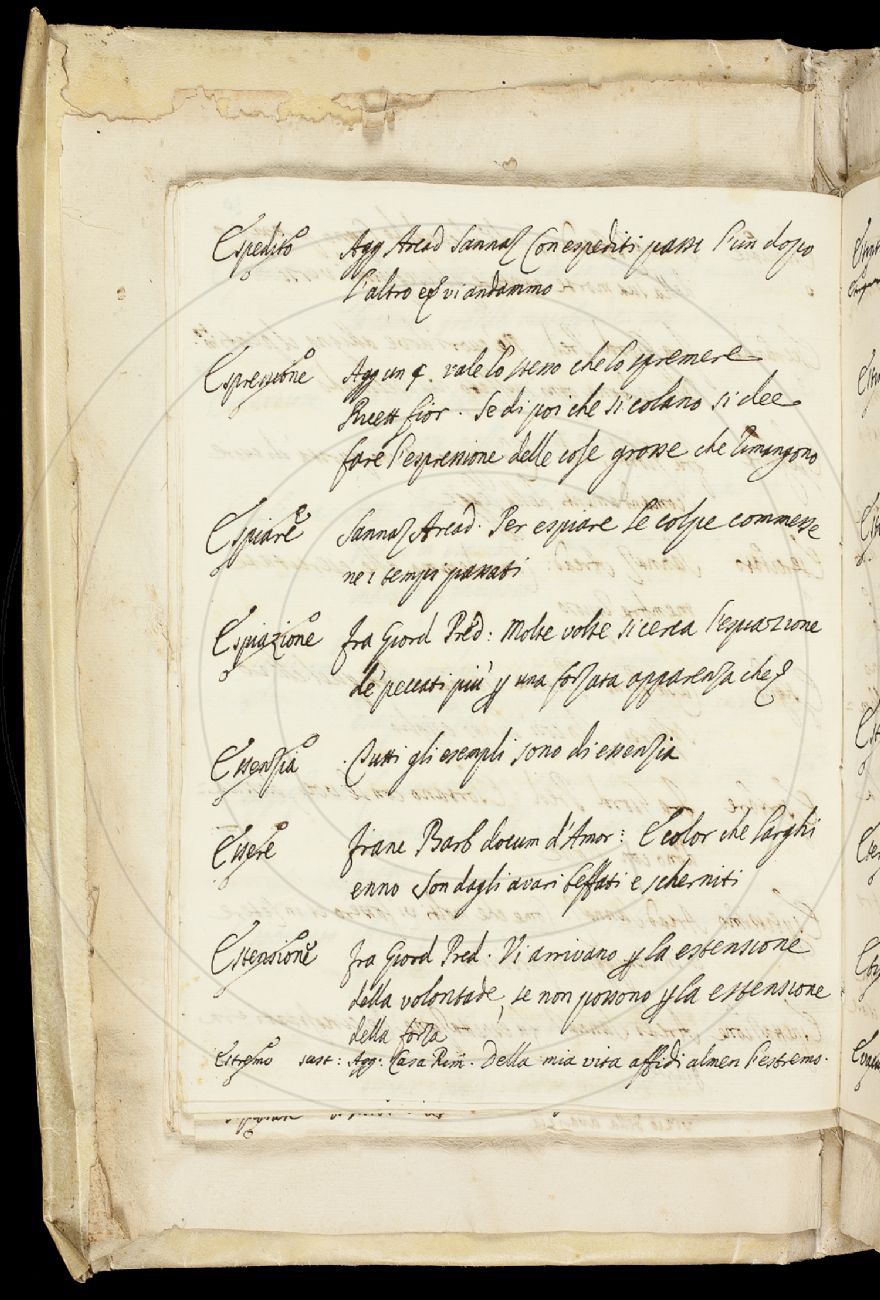 Espedito Agg Arcad Sannaz Con espediti passi l'un dopo
l'altro vi andammo
Espressione Agg un vale lo stesso che lo spremere
Ricett fior. Se di poi che si colano si dee
fare l'espressione delle cose grosse che rimangono
Espiare Sannaz Arcad. Per espiare le colpe commesse
ne i tempi passati
Espiazione fra Giord Pred: Molte volte si cerca l'espiazione
de' peccati più una forzata apparenza che
Essenzia Tutti gli esempli sono di essenzia
Essere franc Barb docum d'Amor: E color che larghi
enno son dagli avari beffati e scherniti
Estensione fra Giord Pred. Vi arrivano p la estensione
della volontade, se non possono p la estensione
della forza
Estremo sust: Agg. Casa Rim. Della mia vita affidi almen l'estremo.